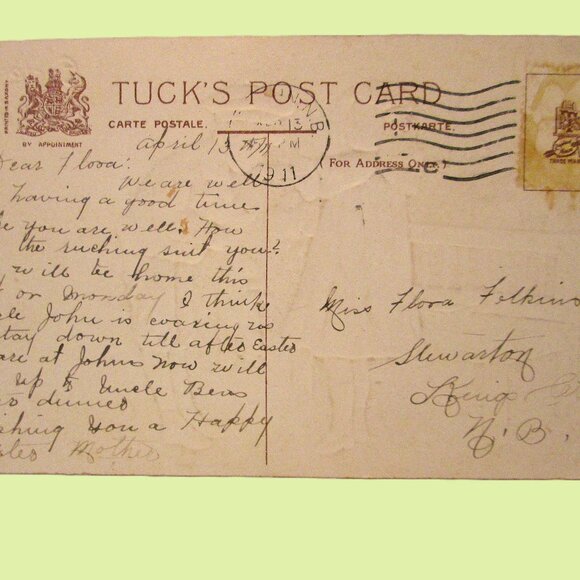 TUCK'S POST CARD
CARTE POSTALE.
POSTKARTE.
BY APPOINTMENT
FOR ADDRESS ONLY.
N.B.
13
PM
1911
April 13
Dear Flora:
We are well
having a good time
you are well. How
the ruching suit you?
will be home this
or Monday I think
John is coaxing us
stay down till after Easter
are at Johns now will
up to Uncle Bens
dinner
Wishing you a Happy
Mother
Miss Flora
Stewarton
Kings
N.B.